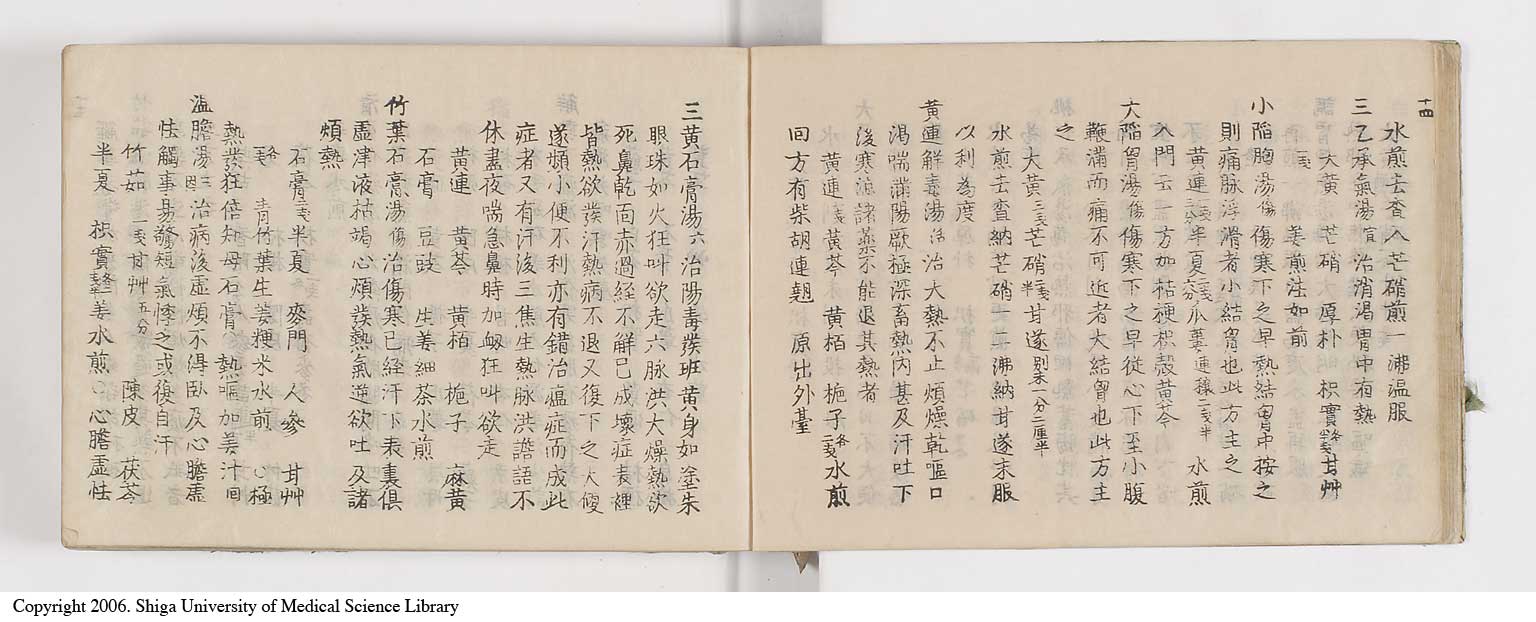 十四
水煎去査入芒硝煎一沸温服
三乙承氣湯宣治消渇胃中有熱
大黄 芒硝 厚朴 枳實各等甘艸
一戔 姜煎法如前
小陷胸湯傷傷寒下之早熱結胷中按之
則痛脉浮滑者小結胷也此方主之
黄連一戔二分半半夏二戔六分瓜蔞連穰二戔半 水煎
入門云一方加枯梗枳殻黄芩
大陷胷湯傷傷寒下之早従心下至小腹
鞕滿而痛不可近者大結胷也此方主
之
大黄三戔芒硝一戔半甘遂別末一分二厘半
水煎去査納芒硝一沸納甘遂末服
以利為度
黄連解毒湯活治大熱不止煩燥乾嘔口
渇喘滿陽厥極深畜熱内甚及汗吐下
後寒涼諸薬不能退其熱者
黄連戔黄芩 黄栢 梔子各一戔水煎
回方有柴胡連翹 原出外臺
三黄石膏湯六治陽毒發班黄身如塗朱
眼珠如火狂叫欲走六脉洪大燥熱欲
死鼻乾面赤過経不觧已成壞症表裡
皆熱欲發汗熱病不退又復下之大便
遂頻小便不利亦有錯治瘟症而成此
症者又有汗後三焦生熱脉洪譫語不
休晝夜喘急鼻時加衂狂叫欲走
黄連 黄芩 黄栢 梔子 麻黄
石膏 豆豉 生姜細茶水煎
竹葉石膏湯傷治傷寒已経汗下表裏倶
虛津液枯竭心煩發熱氣逆欲吐及諸
煩熱
石膏二戔半夏一戔 麥門 人參 甘艸
各戔 青竹葉生姜粳米水前 〇極
熱發狂倍知母石膏 熱嘔加姜汁回
温膽湯三治病後虛煩不得臥及心膽虛
怯觸事昜驚短氣悸乏或復自汗
竹茹一戔甘艸五分 陳皮 茯苓
半夏 枳實各一戔姜水煎〇心膽虛怯